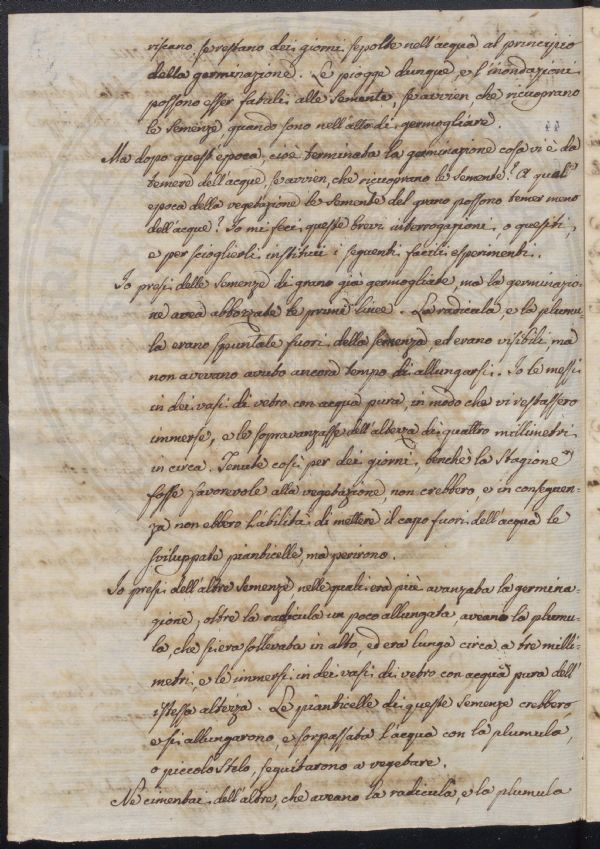 riscano, se restano dei giorni sepolte nell'acqua al principio
della germinazione. Le piogge dunque, e l'inondazioni
possono esser fatali alle semente, se avvien, che ricuoprano
le semenze, quando sono nell'atto di germogliare.
Ma dopo quest'epoca, cioè terminata la germinazione cosa vi è da
temere dell'acque, se avvien, che ricuoprano le semente? A qual'
epoca della vegetazione le semente del grano possono temer meno
dell'acque? Io mi feci queste brevi interrogazioni, o quesiti,
e per scioglierli instituii i seguenti facili esperimenti.
Io presi delle semenze di grano già germogliate, ma la germinazio-
ne avea abbozzate le prime linee. La radicula, e la plumu-
la erano spuntate fuori della semenza, ed erano visibili, ma
non avevano avuto ancora tempo di allungarsi. Io le messi
in dei vasi di vetro con acqua pura, in modo che vi restassero
immerse, e le sopravanzasse dell'altezza di quattro millimetri
in circa. Tenute così per dei giorni, benchè la stagione
fosse favorevole alla vegetazione, non crebbero, e in conseguen-
za non ebbero l'abilità di mettere il capo fuori dell'acqua le
sviluppate pianticelle, ma perirono.
Io presi dell'altre semenze nelle quali era più avanzata la germina-
zione, oltre la radicula un poco allungata, aveano la plumu-
la, che si era sollevata in alto, ed era lunga circa a tre milli-
metri, e le immersi in dei vasi di vetro con acqua pura dell'
istessa altezza. Le pianticelle di queste semenze crebbero,
e si allungarono, e sorpassata l'acqua con la plumula,
o piccolo stelo, seguitarono a vegetare.
Ne cimentai dell'altre, che aveano la radicula, e la plumula